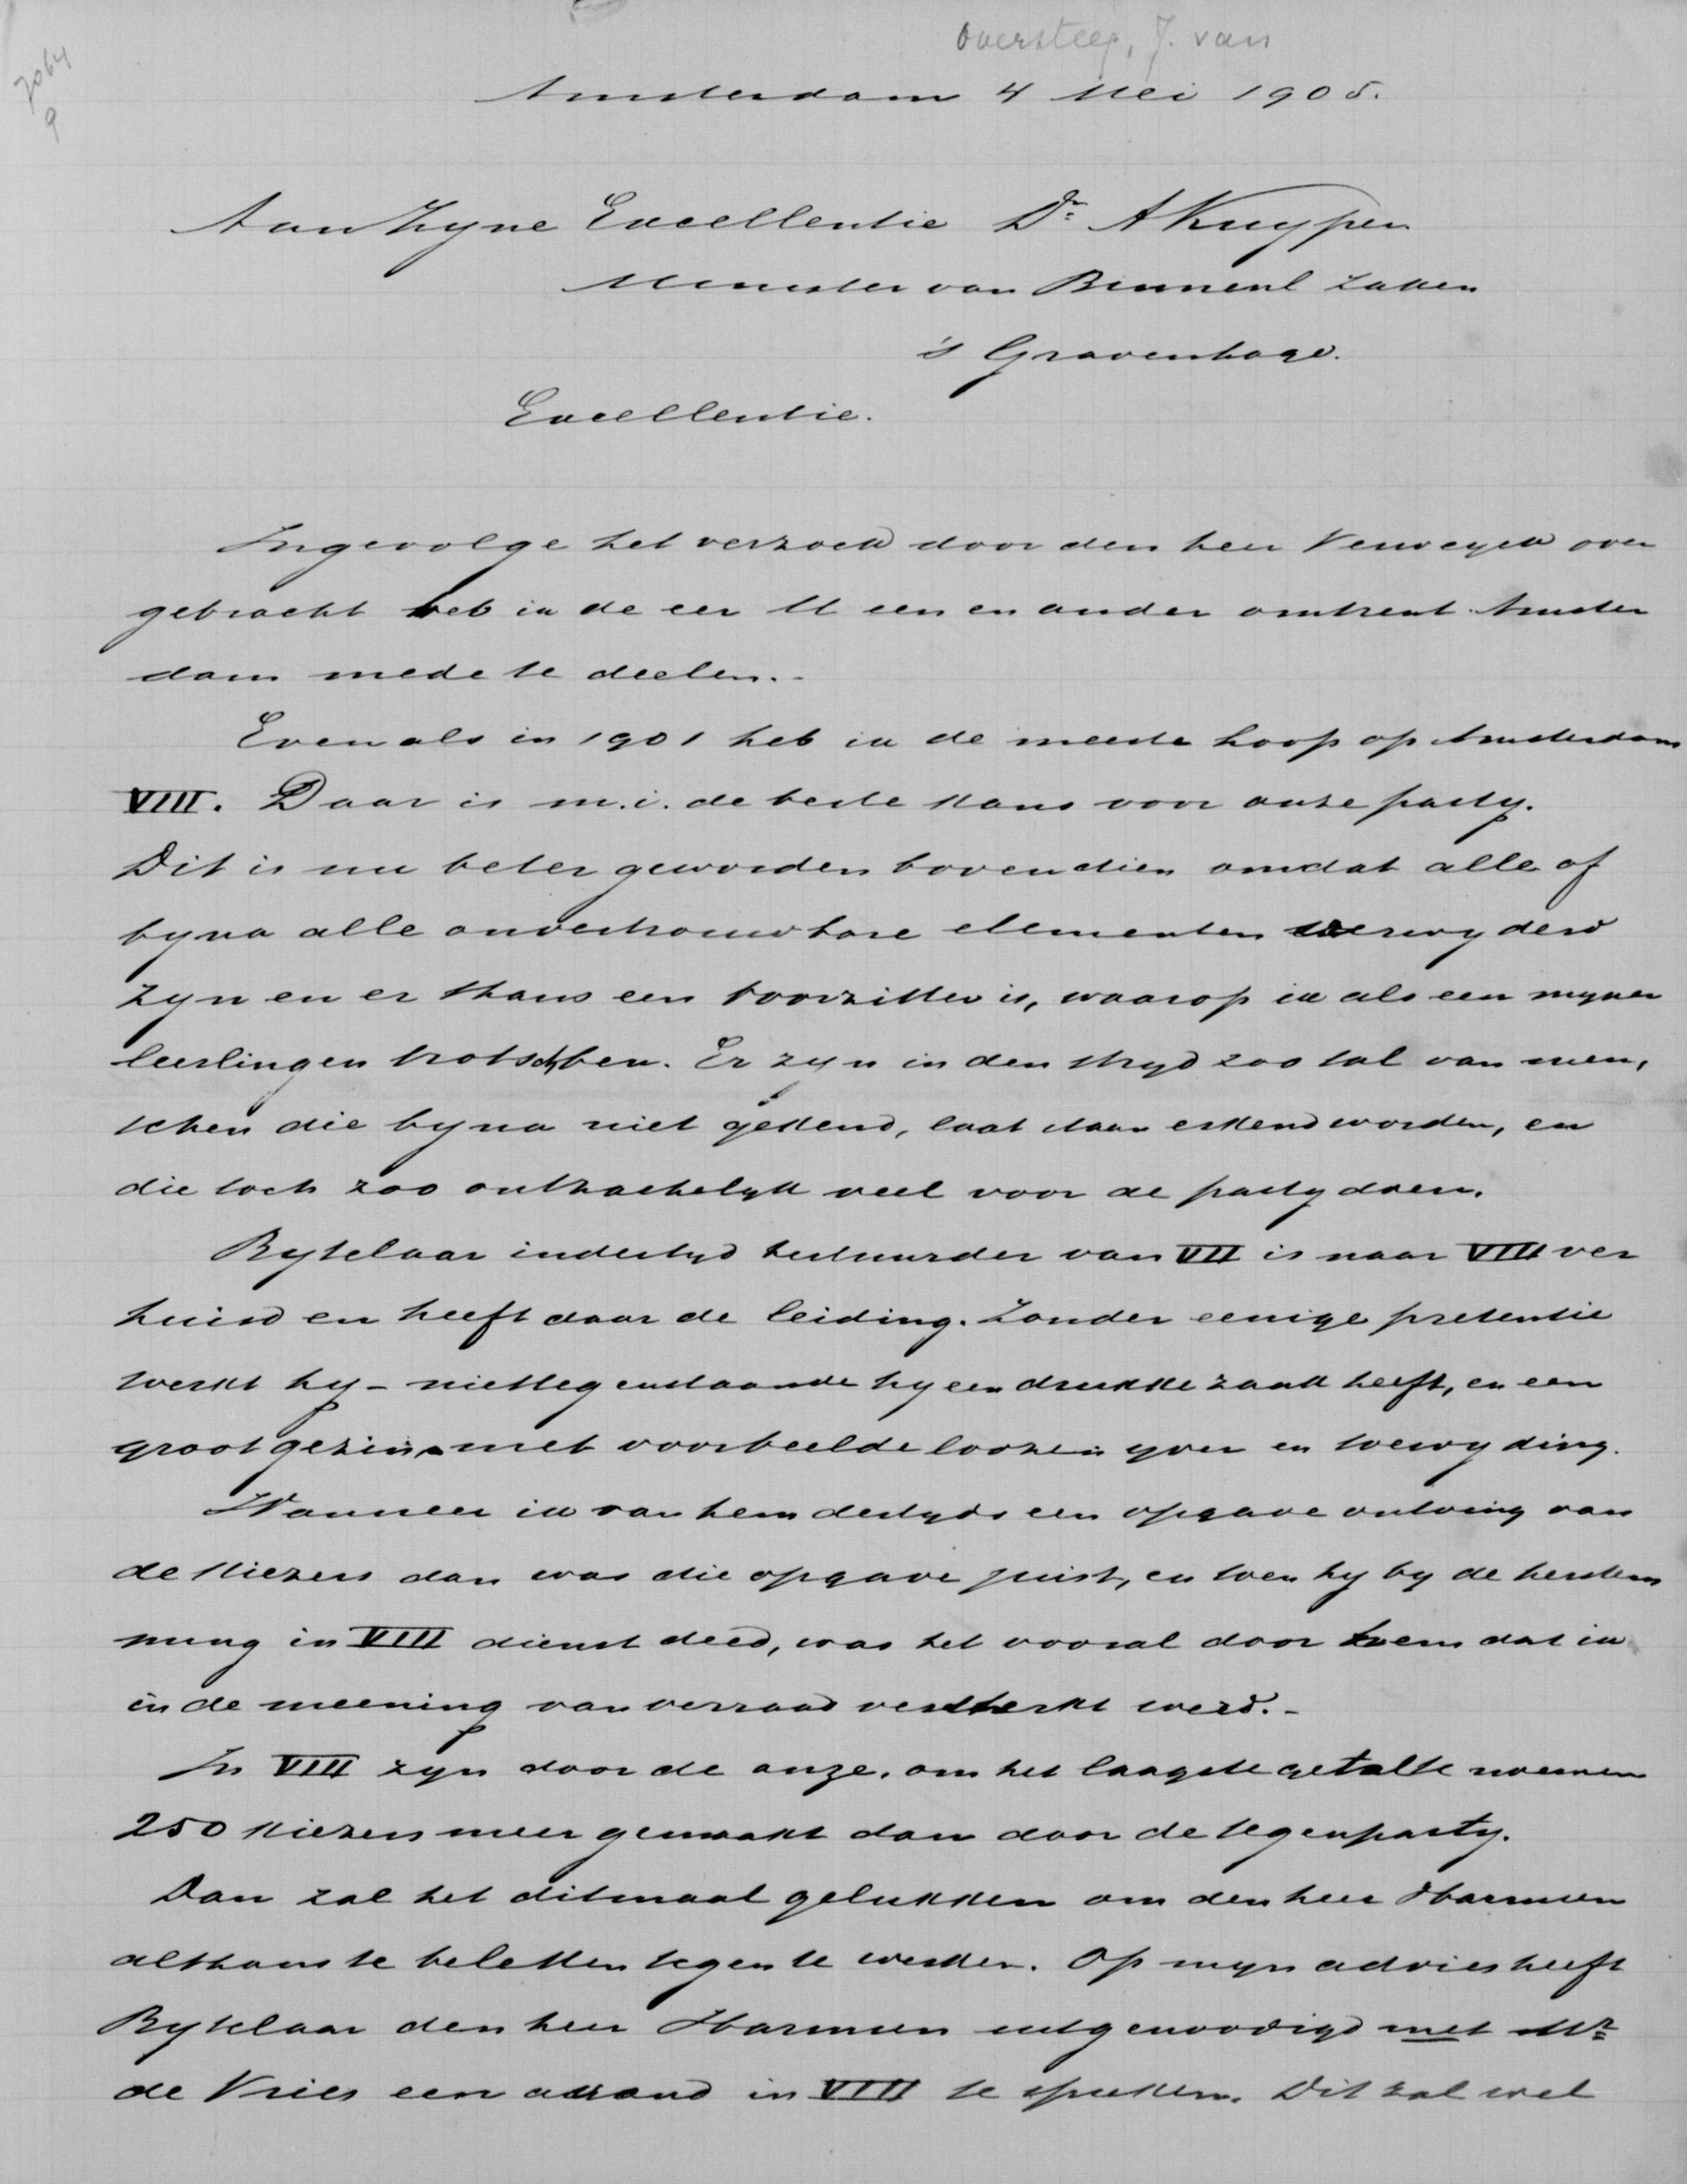 oversteeg, J. van
7064
9
Amsterdam 4 Mei 1905.
Aan Zyne Excellentie Dr. A Kuyper
Minister van Binnenl Zaken
's Gravenhage.
Excellentie.
Ingevolge het verzoek door den heer Verweyck over
gebracht heb ik de eer U een en ander omtrent Amster
dam mede te deelen.-
Even als in 1901 heb ik de meeste hoop op Amsterdam
VIII. Daar is m.i. de beste kans voor onze party.
Dit is nu beter geworden bovendien omdat alle of
byna alle onvertrouwbare elementen verwyderd
zyn en er thans een voorzitter is, waarop ik als een myner
leerlingen trotsch ben. Er zyn in den stryd zoo tal van men,
schen die byna niet gekend, laat staan erkend worden, en
die toch zoo ontzachelyk veel voor de party doen.
Bytelaar indertyd bestuurder van VII is naar VIII ver
huisd en heeft daar de leiding. Zonder eenige pretentie
werkt hy - niettegenstaande hy een drukke zaak heeft, en een
groot gezin, met voorbeeldeloozen yver en toewyding.
Wanneer ik van hem destyds een opgave ontving van
de kiezers dan was die opgave juist, en toen hy by de herstem
ming in VIII dienst deed, was het vooral door hem dat ik
in de meening van verraad versterkt werd.-
In VIII zyn door de onze, om het laagste getal te noemen
250 kiezers meer gemaakt dan door de tegenparty.
Dan zal het ditmaal gelukken om den heer Harmsen
althans te beletten tegen te werken. Op myn advies heeft
Bytelaar den heer Harmsen uitgenoodigd met Mr.
de Vries een avond in VIII te spreken. Dit zal wel